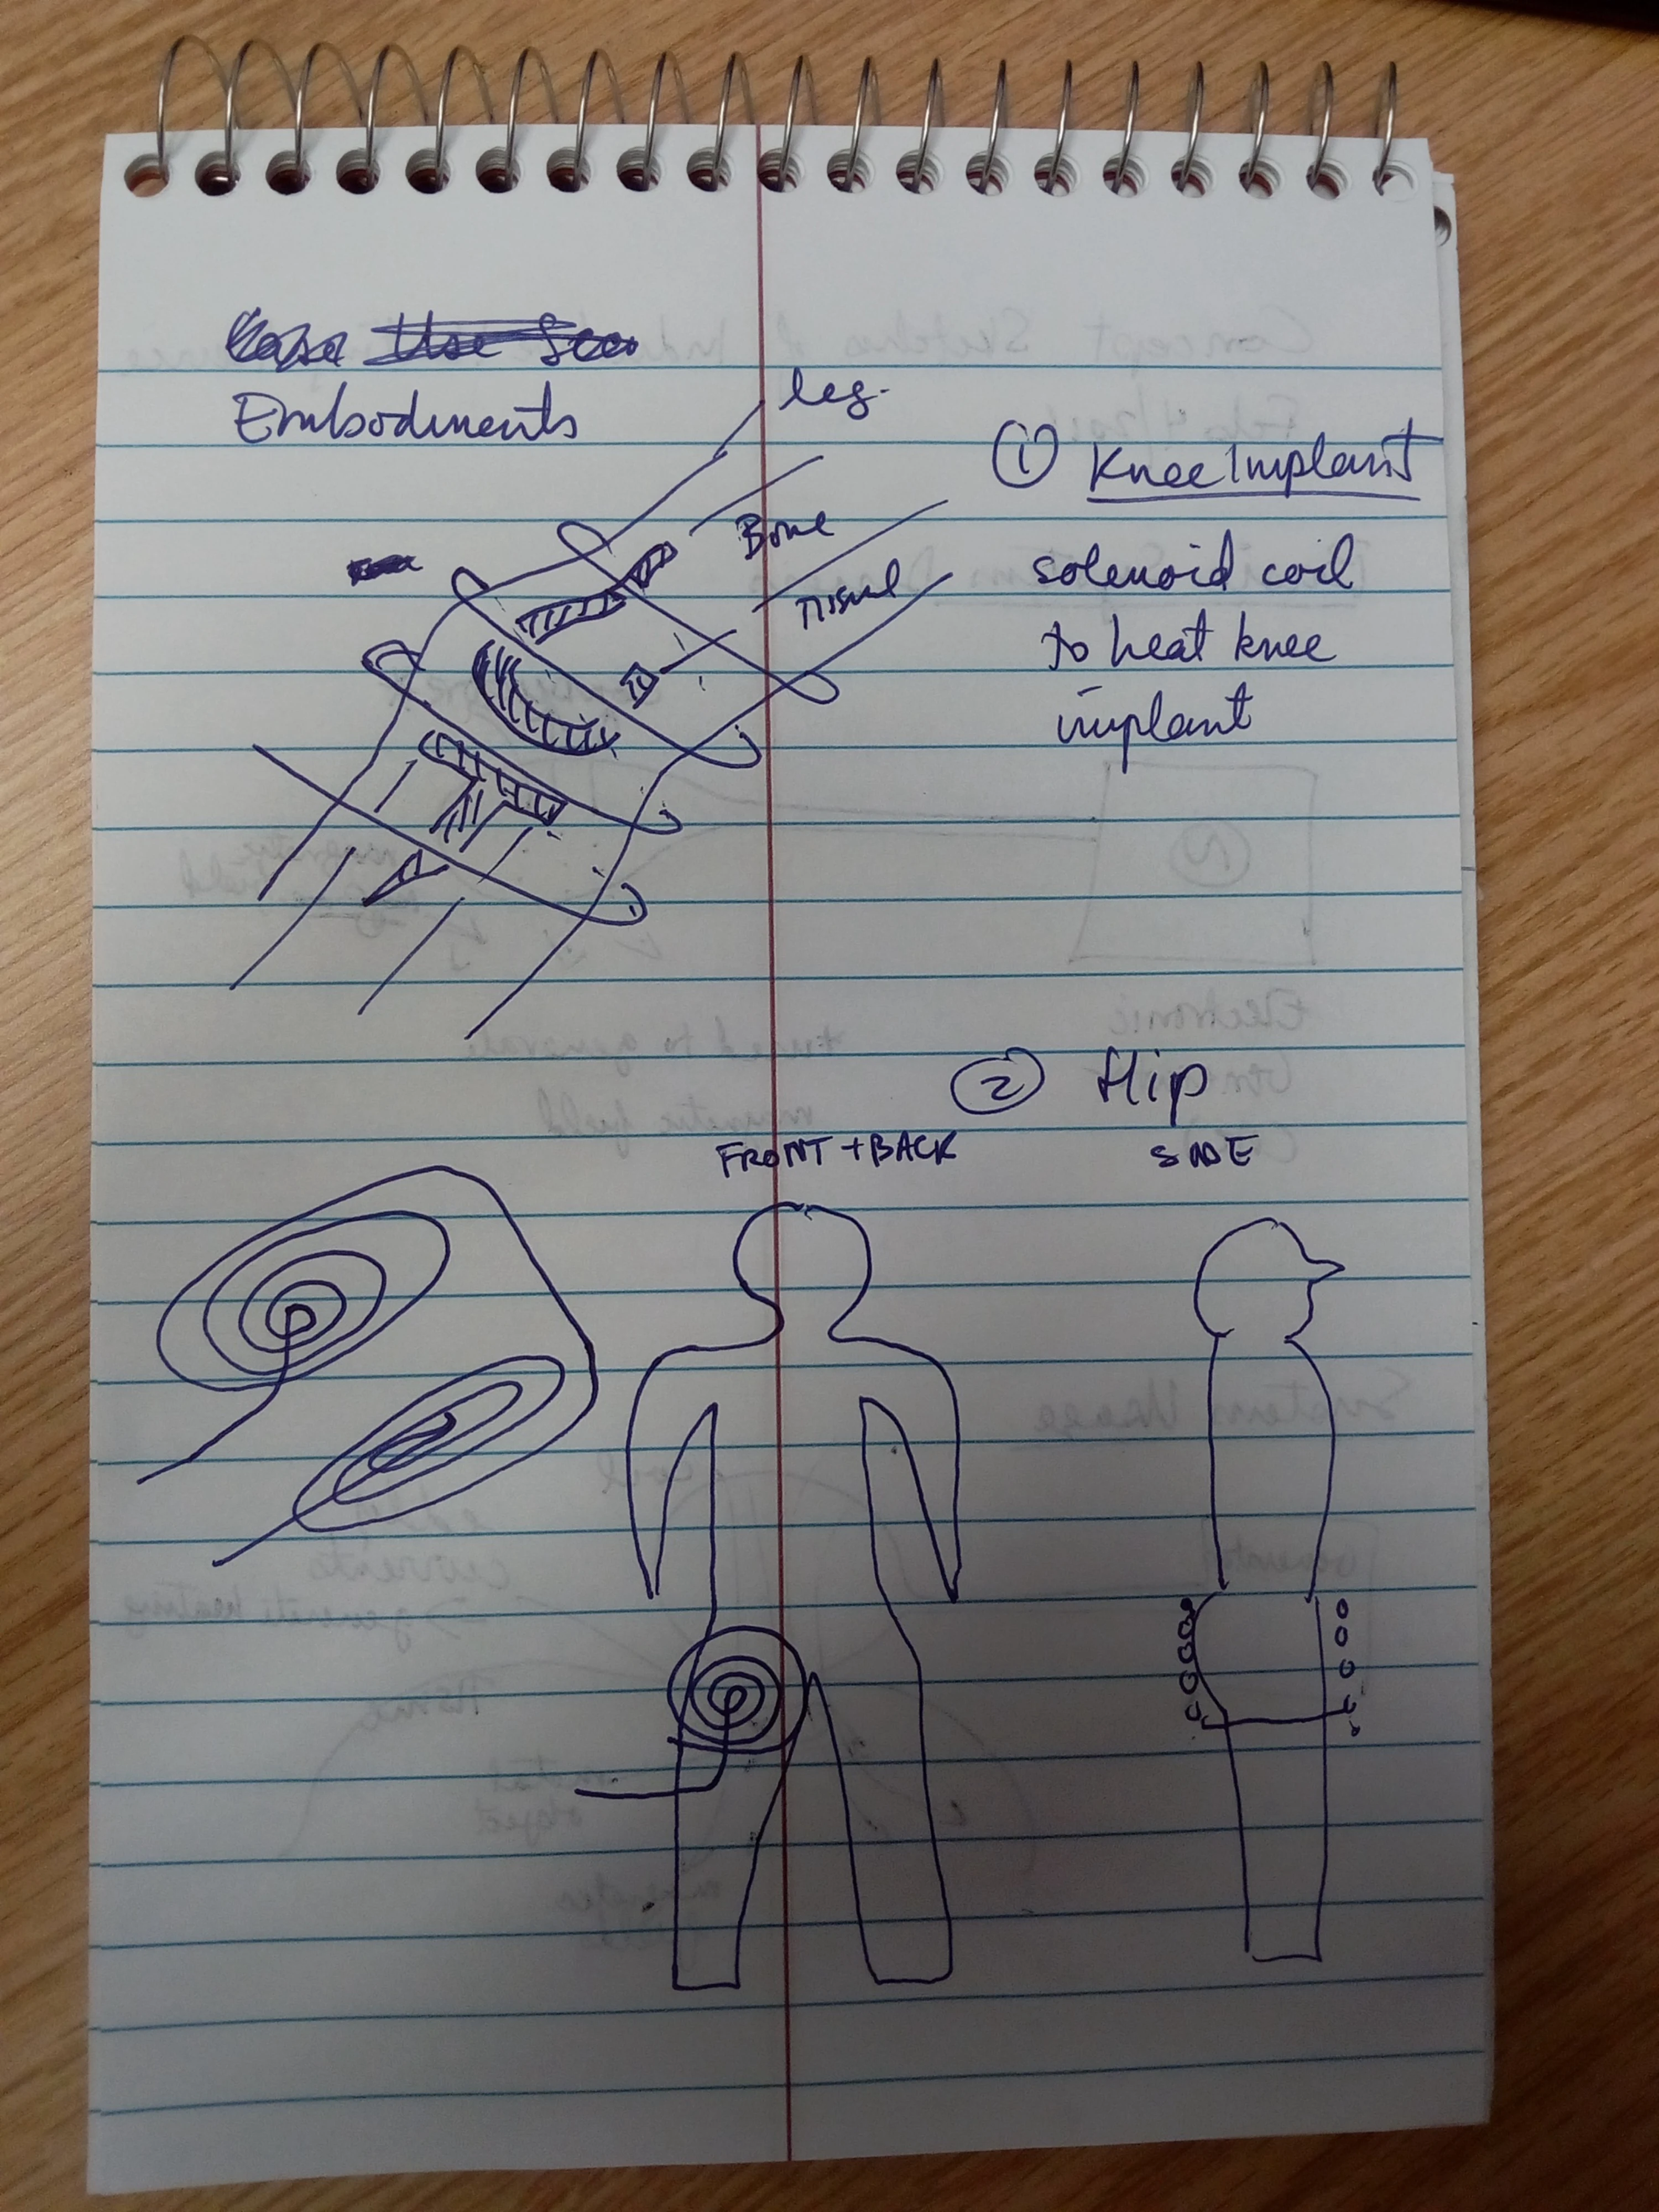 Embodiments
leg.
① Knee Implant
Bone
solenoid coil
to heat knee
implant
② Hip
FRONT + BACK
SIDE